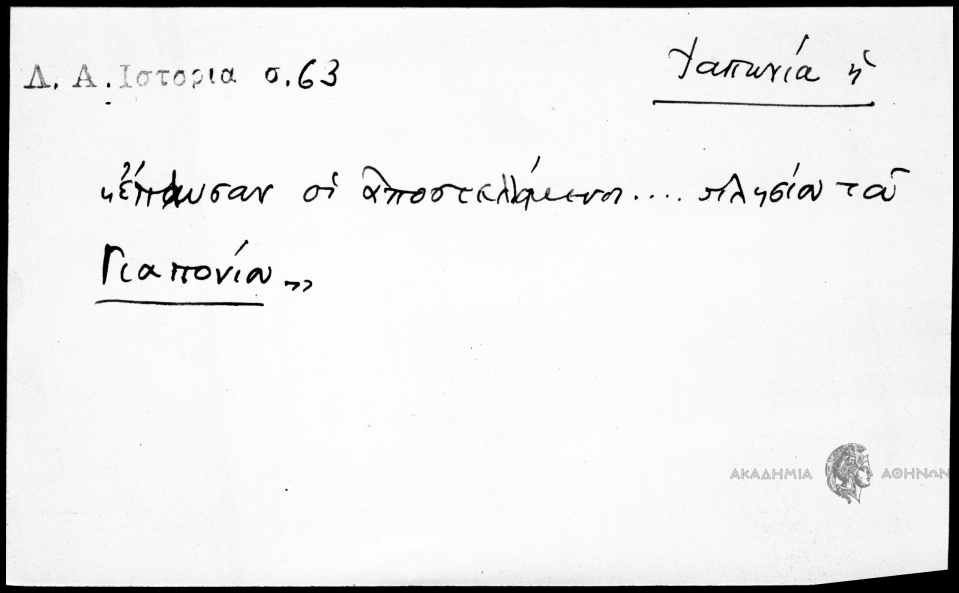 Λ. Α. Ιστορια σ. 63
Ἰαπωνία ἡ
«ἔπαυσαν οἱ ἀποστελλόμενοι.... πλησίον τοῦ
Γιαπονίου»
ΑΚΑΔΗΜΙΑ ΑΘΗΝΩΝ